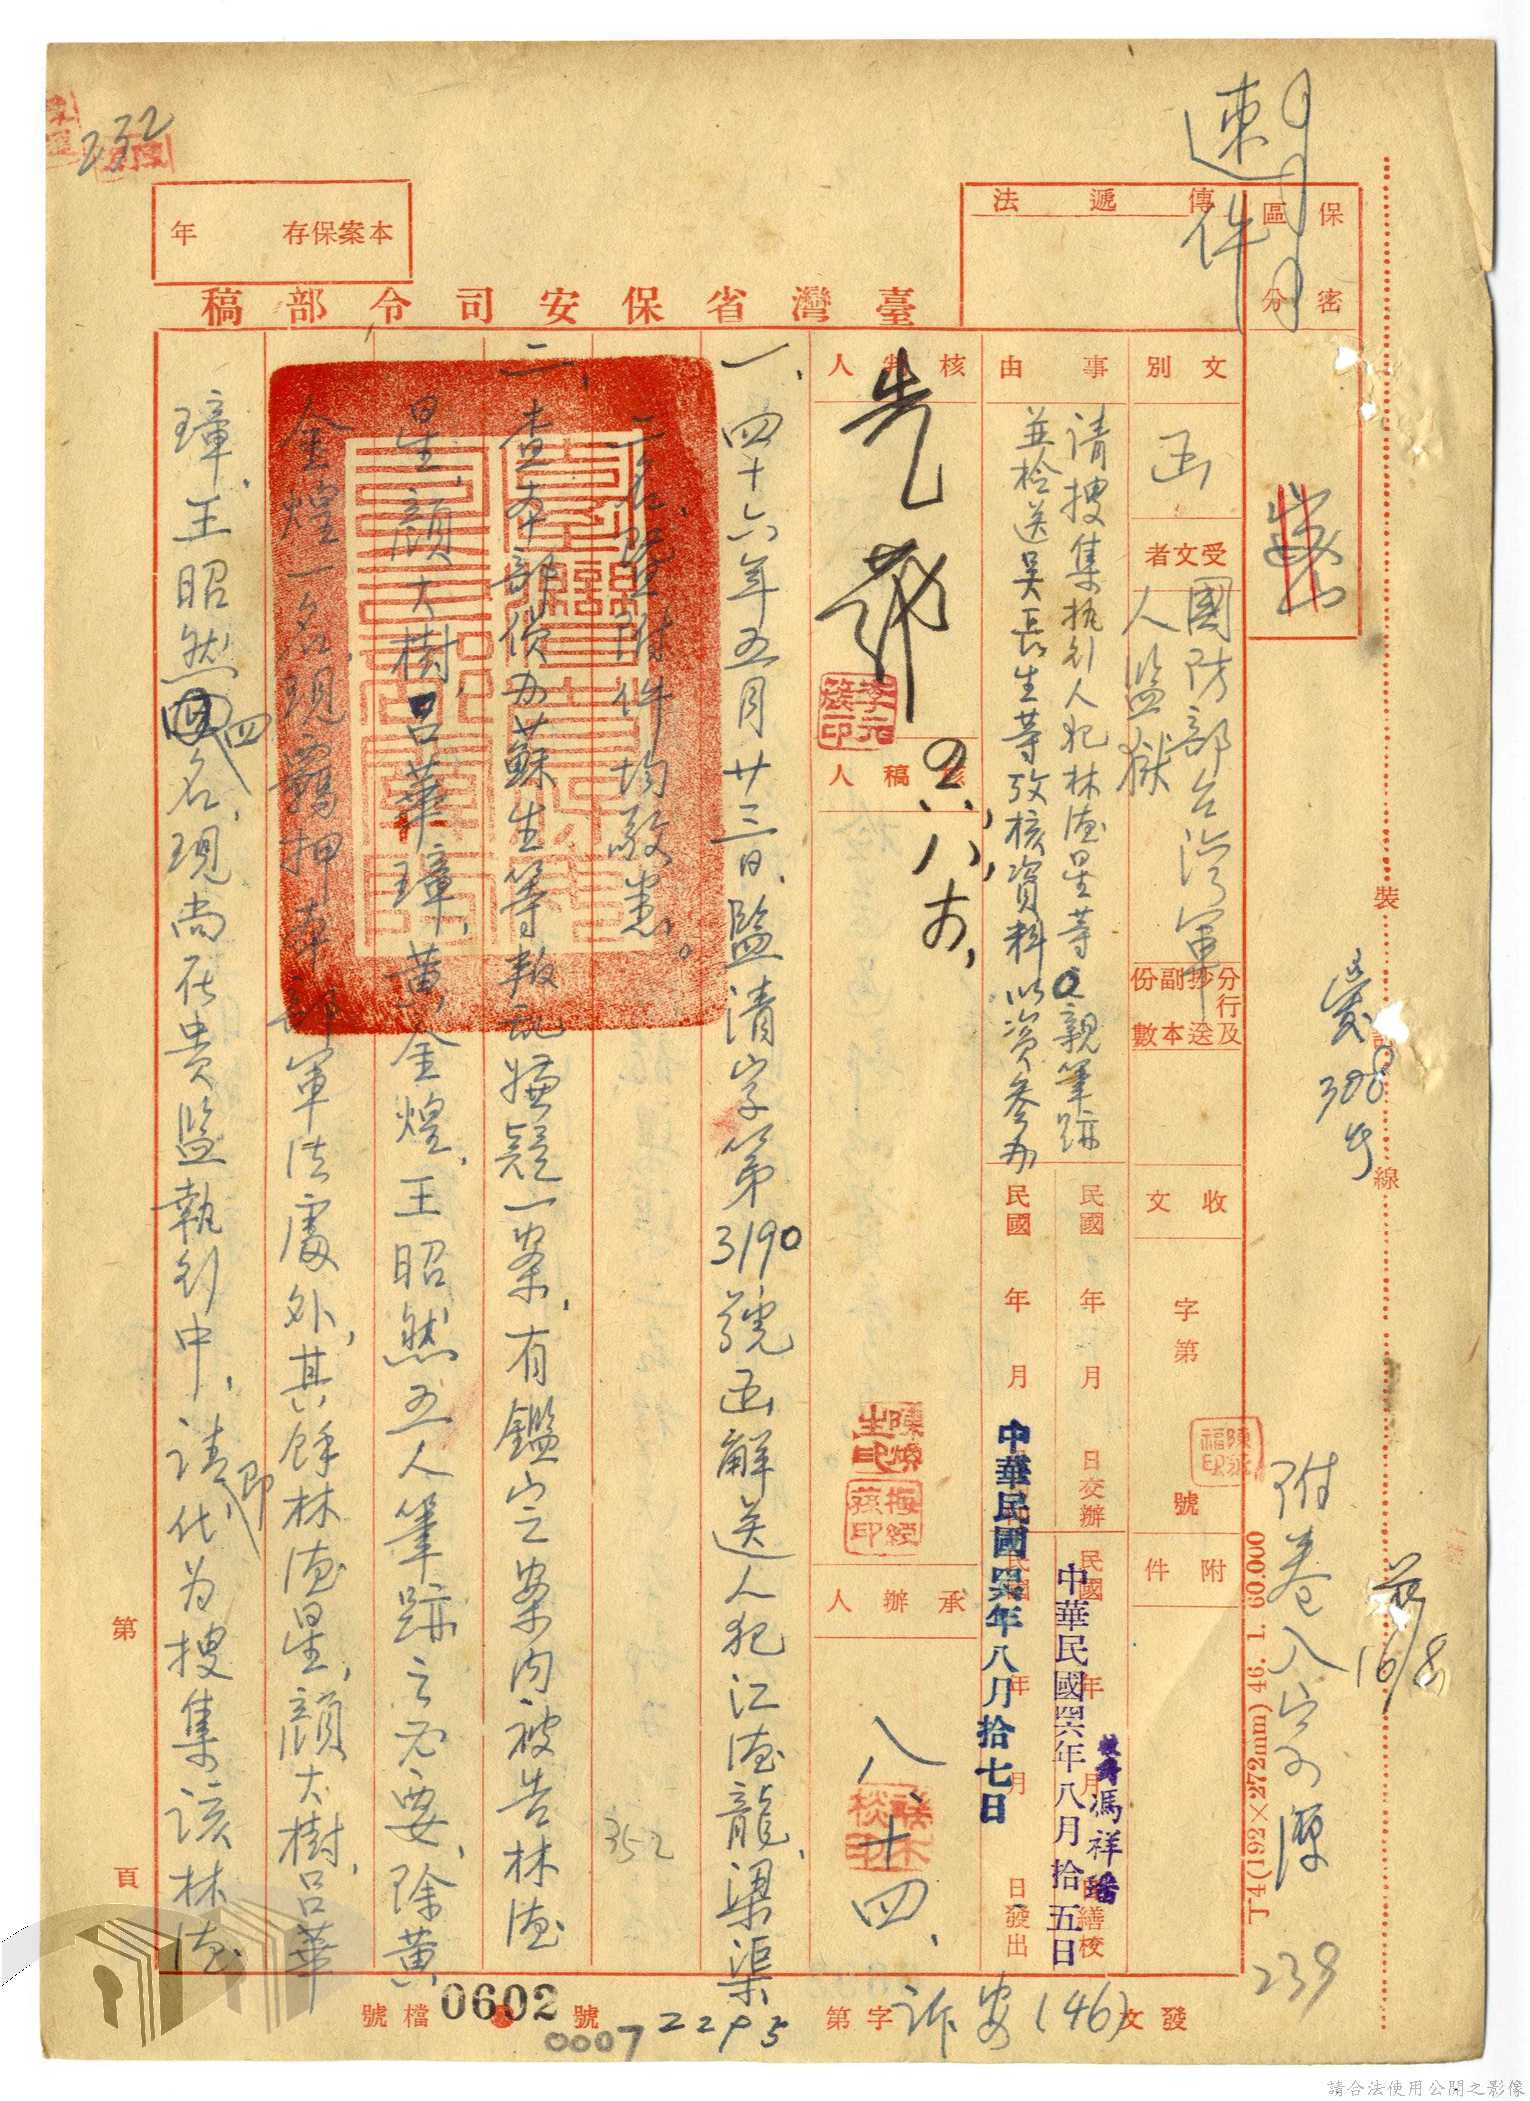 速件
保密
區分
傳遞法
本案保存 年
臺灣省保安司令部稿
232
文別
函
受文者
國防部台灣軍
人監獄
分行及
抄送副本份數
收文
字第
號
附件
事由
请搜集执行人犯林德星等之親筆跡
並检送吳長生等攷核資料以資参办
民國 年 月 日交辦
民國 年 月 日繕校
民國 年 月 日發出
中華民國四六年八月拾五日
馮祥
中華民國四六年八月拾七日
核判人
核稿人
承辦人
八、十四、
李元簇印
一、四十六年五月廿三日、監清字第3190號函解送人犯江德龍、梁渠
二名暨附件均敬悉。
二、查本部偵办蘇生等叛亂嫌疑一案，有鑑定案内被告林德
星、顏大樹、呂華璋、黃金煌、王昭然五人筆跡之必要，除黃
金煌一名現羈押本部軍法處外，其餘林德星、顏大樹、呂華
璋、王昭然四名，現尚在貴監執行中，请即代为搜集該林德
裝
訂
線
308
附卷八字
168
T-4(192×272mm) 46. 1. 60.000
239
352
第 頁
發文
(46)
安訴
字第
2295
號
0007
檔號
0602
請合法使用公開之影像